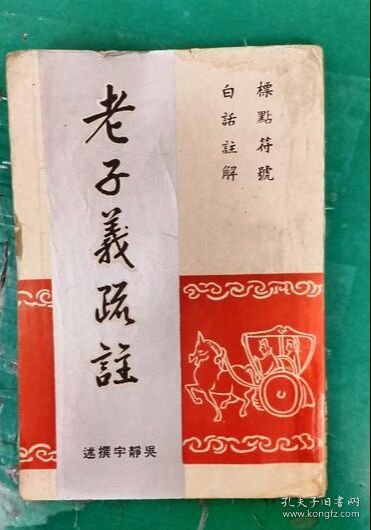 標點符號
白話註解
老子義疏註
吳靜宇撰述
孔夫子旧书网
www.kongfz.com